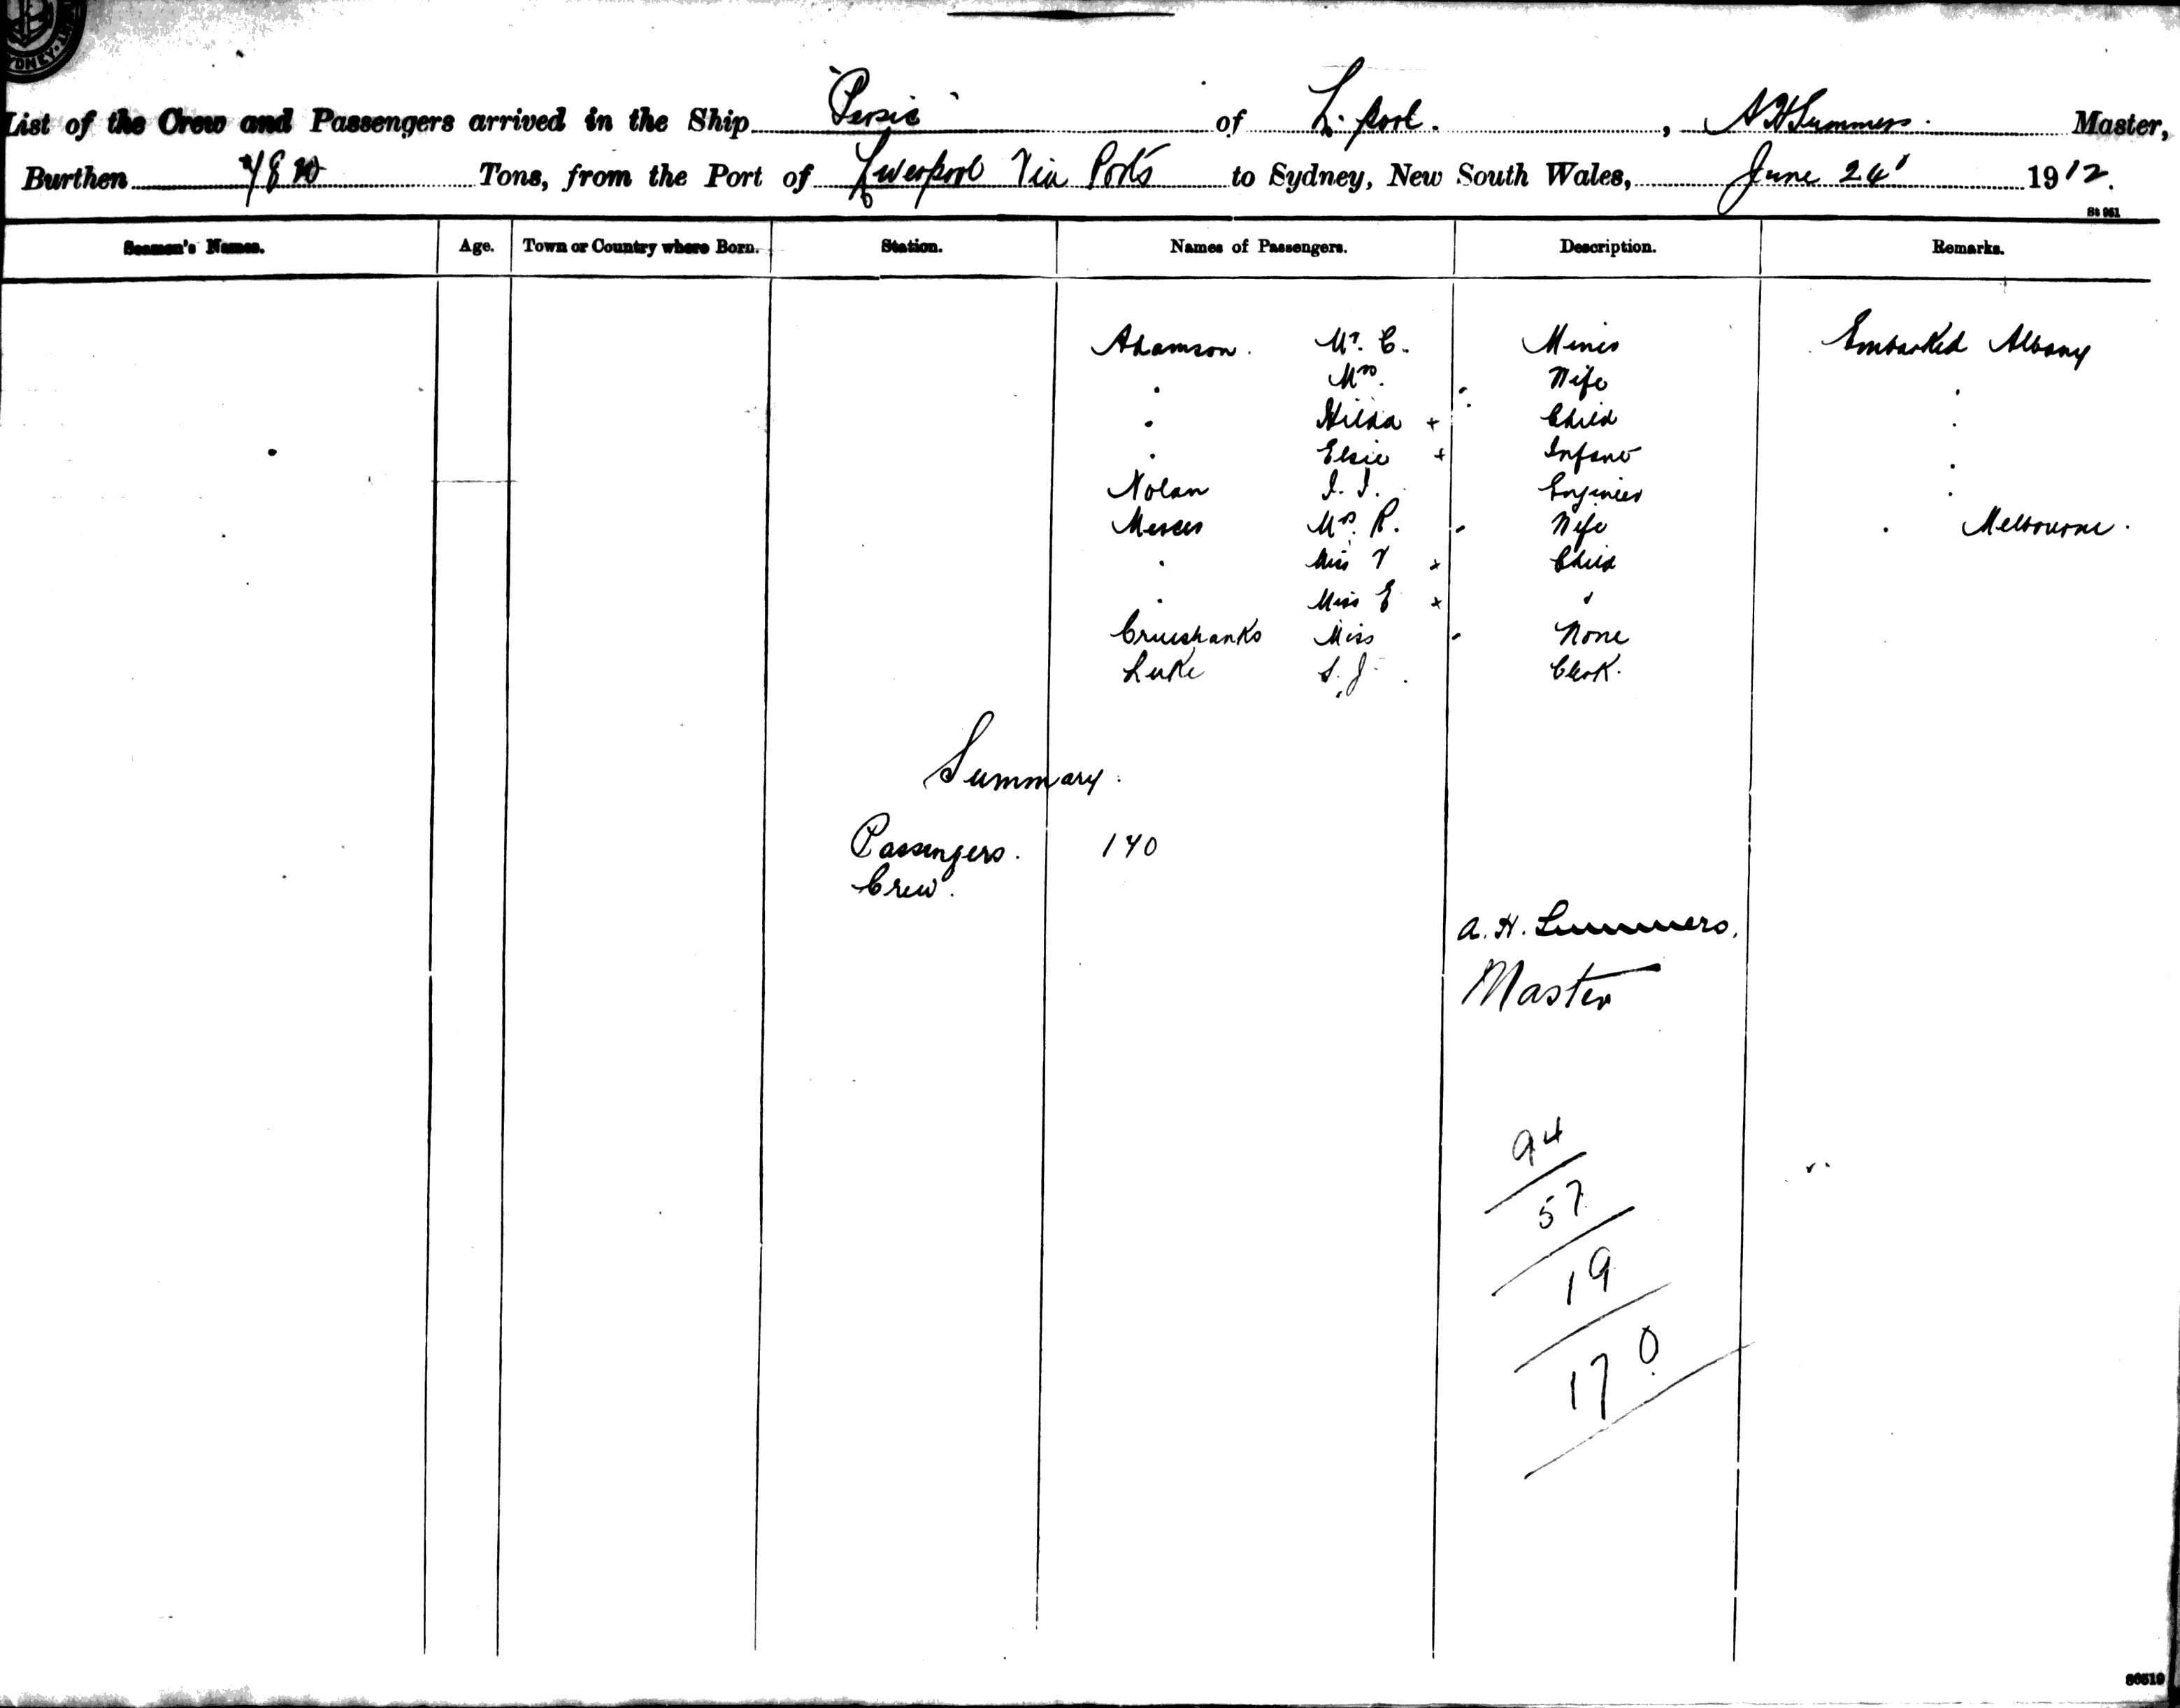 List of the Crew and Passengers arrived in the Ship "Persic" of L. pool. , A H Summers. Master,
Burthen Tons, from the Port of Liverpool Via Ports to Sydney, New South Wales, June 24' 1912.
St 961
Seamen's Names. Age. Town or Country where Born. Station. Names of Passengers. Description. Remarks.
Adamson. Mr. C. Miner Embarked Albany
" Mrs. Wife "
" Hilda + Child "
" Elsie + Infant "
Nolan J. J. Engineer "
Mercer Mrs. R. Wife " Melbourne.
" Miss V + Child
" Miss E + "
Cruishanks Miss None
Luke S. J. Clerk.
Summary.
Passengers. 170
Crew.
A. H. Summers.
Master
94
57
19
170